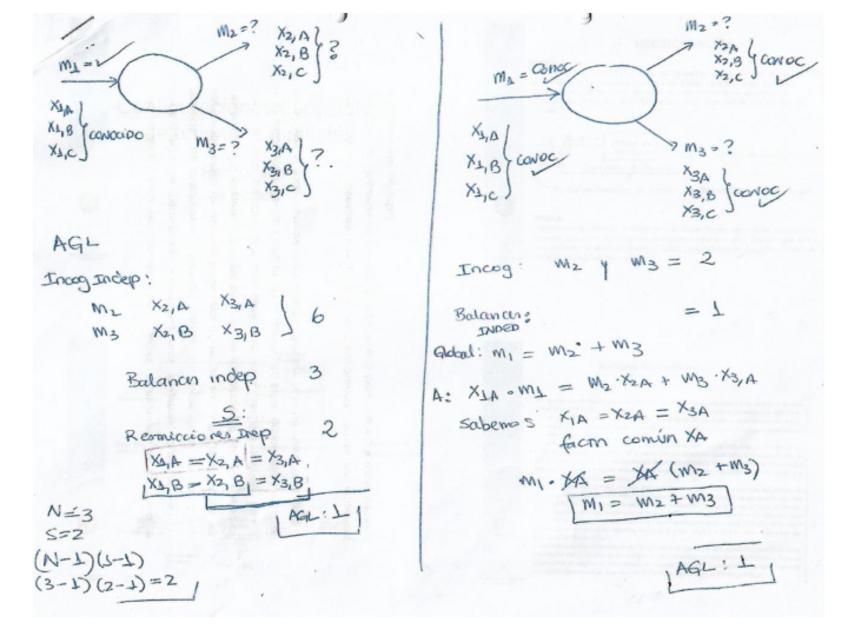 m₁ = ✓
m₂ = ?
X₂,A
X₂,B
X₂,C
?
X₁,A
X₁,B
X₁,C
CONOCIDO
m₃ = ?
X₃,A
X₃,B
X₃,C
?
AGL
Incog Indep:
m₂ X₂,A X₃,A
m₃ X₂,B X₃,B
6
Balances indep 3
S:
Restricciones Inep 2
X₁,A = X₂,A = X₃,A
X₁,B = X₂,B = X₃,B
AGL: 1
N=3
S=2
(N-1)(S-1)
(3-1)(2-1)=2
m₁ = CONOC ✓
m₂ = ?
X₂A
X₂,B
X₂,C
CONOC ✓
X₁,A
X₁,B
X₁,C
CONOC ✓
m₃ = ?
X₃A
X₃,B
X₃,C
CONOC ✓
Incog: m₂ y m₃ = 2
Balances: = 1
INDEP
Global: m₁ = m₂ + m₃
A: X₁A · m₁ = m₂ · X₂A + m₃ · X₃,A
Sabemos X₁A = X₂A = X₃A
factor común XA
m₁ · XA = XA (m₂ + m₃)
m₁ = m₂ + m₃
AGL: 1